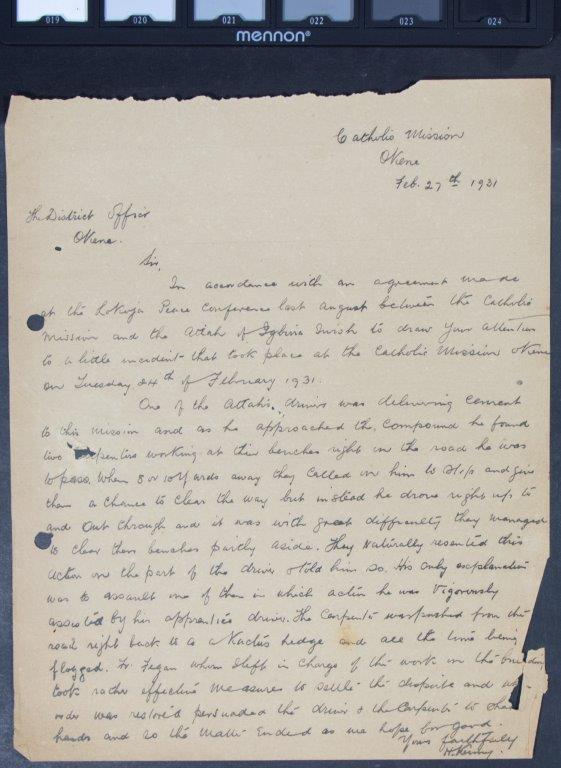 019 020 021 022 023 024
mennon®
Catholic Mission
Okene
Feb. 27th 1931
The District Officer
Okene.
Sir,
In accordance with an agreement made
at the Lokoja Peace Conference last August between the Catholic
Mission and the Attah of Igbira I wish to draw your attention
to a little incident that took place at the Catholic Mission Okene
on Tuesday 24th of February 1931.
One of the Attah's drivers was delivering cement
to this mission and as he approached the compound he found
two carpenters working at their benches right on the road he was
to pass. When 8 or 10 yards away they called on him to stop and give
them a chance to clear the way but instead he drove right up to
and out through and it was with great difficulty they managed
to clear their benches partly aside. They naturally resented this
action on the part of the driver & told him so. His only explanation
was to assault one of them in which action he was vigorously
assisted by his apprentice driver. The carpenter was pushed from the
road right back to a Kactus hedge and all the time being
flogged. Fr. Fegan whom I left in charge of the work on the building
took rather effective measures to settle the dispute and
order was restored persuaded the driver & the carpenter to shake
hands and so the matter ended as we hope for good.
Yours faithfully